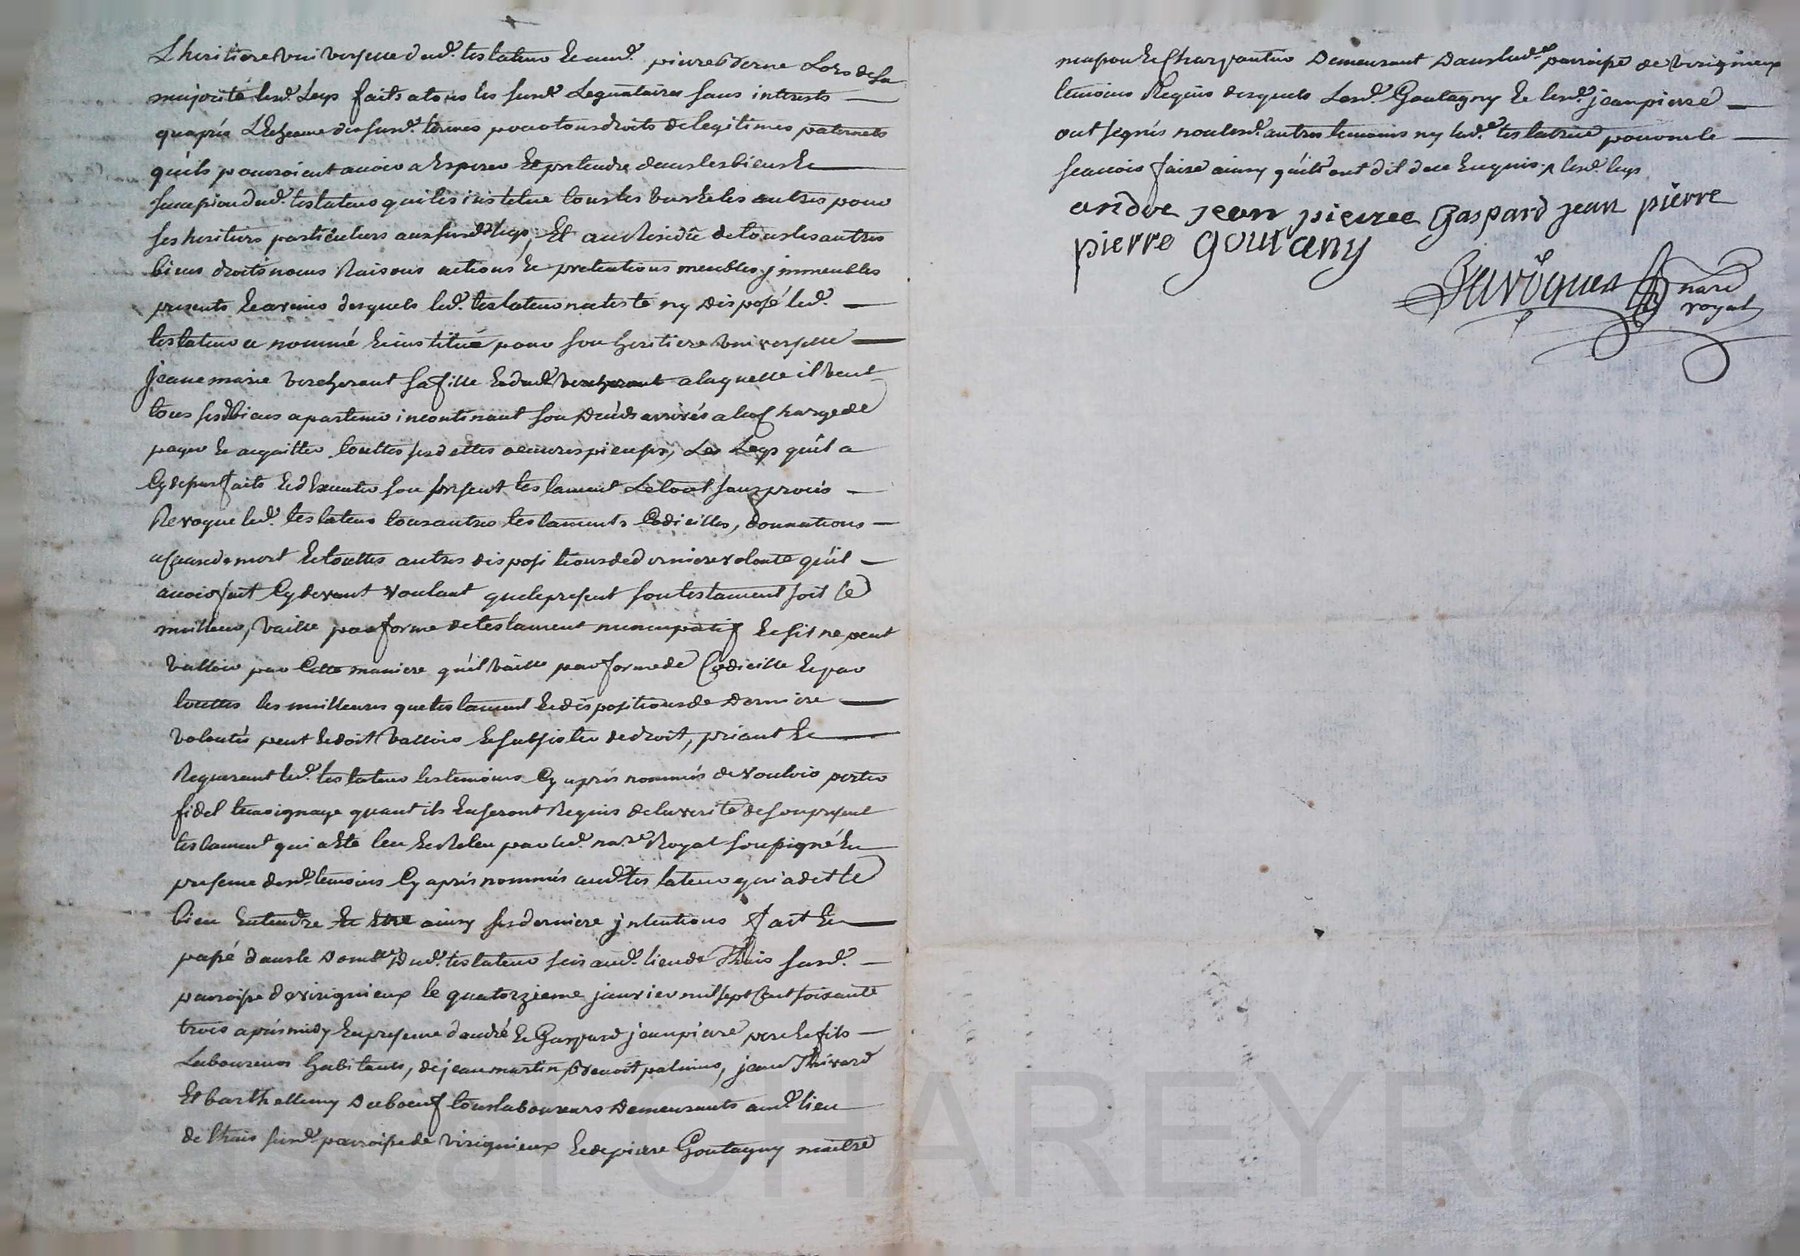 L'heritiere universelle dud. testateur et aud. pierre Verne Lors de sa
majorité lesd. Legs faits a tous les susd. Legataires sans interests
qu'aprés L'Echeance des susd. termes pour tous droits de legitimes paternels
qu'ils pourroient avoir a Esperer et pretendre dans les biens Et
succession dud. testateur qui les institue tous les uns et les autres pour
ses heritiers particuliers aux susd. legs, Et au Residu de tous les autres
biens droits noms Raisons actions et pretentions meubles jmmeubles
presents et avenir desquels led. testateur na testé ny Disposé led.
testateur a nommé Et institué pour son heritiere universelle
Jeanemarie vercherant sa fille a laquelle il veut
tous sesd. biens apartenir incontinant son Décés arrivés a la charge de
payer et acquitter touttes ses dettes oeuvres pieuses, Les Legs qu'il a
Cy dessus faits Et d'Executer son present testament Le tout sans procés
Revoque led. testateur tous autres testaments Codicilles, donnations
a cause de mort Et touttes autres dispositions de derniere volonté qu'il
auroit fait Cy devant voulant que le present son testament soit le
meilleur, vaille par forme de testament nuncupatif Et sil ne peut
valloir par Cette maniere qu'il vaille par forme de Codicille Et par
touttes les meilleures que testament Et dispositions de Derniere
volontés peut Et doit valloir Et subsister de droit, priant Et
Requerant led. testateur les temoins Cy aprés nommés de vouloir porter
fidel temoignage quant ils En seront Requis de la verité de son present
testament qui a Eté leu Et Releu par led. nare. Royal soussigné En
presence desd. temoins Cy aprés nommés aud. testateur qui a dit le
bien Entendre Et Etre ainsy ses derniere jntentions fait Et
passé dans le Domlle. Dud. testateur scis aud. lieu de Thais susd.
parroisse de virignieux le quatorzieme janvier mil sept Cent soixante
trois aprés midy En presence d'andré Et Gaspard jeanpierre pere Et fils
Laboureurs habitants, de jean martin, Benoit palmier, jean Thivard
Et barthellemy Duboeuf tous laboureurs Demeurants aud. lieu
de thais susd. parroisse de virignieux Et de pierre Goutagny maitre
masson Et Charpantier Demeurant Dans lad. parroisse de virignieux
temoins Requis desquels Lesd. Goutagny Et lesd. jeanpierre
ont signés non lesd. autres temoins ny led. testateur pour ne le
scavoir faire ainsy qu'ils ont dit de ce Enquis
andre jean pierre Gaspard jean pierre
pierre goutany
nare
royal
CHARLEYRON